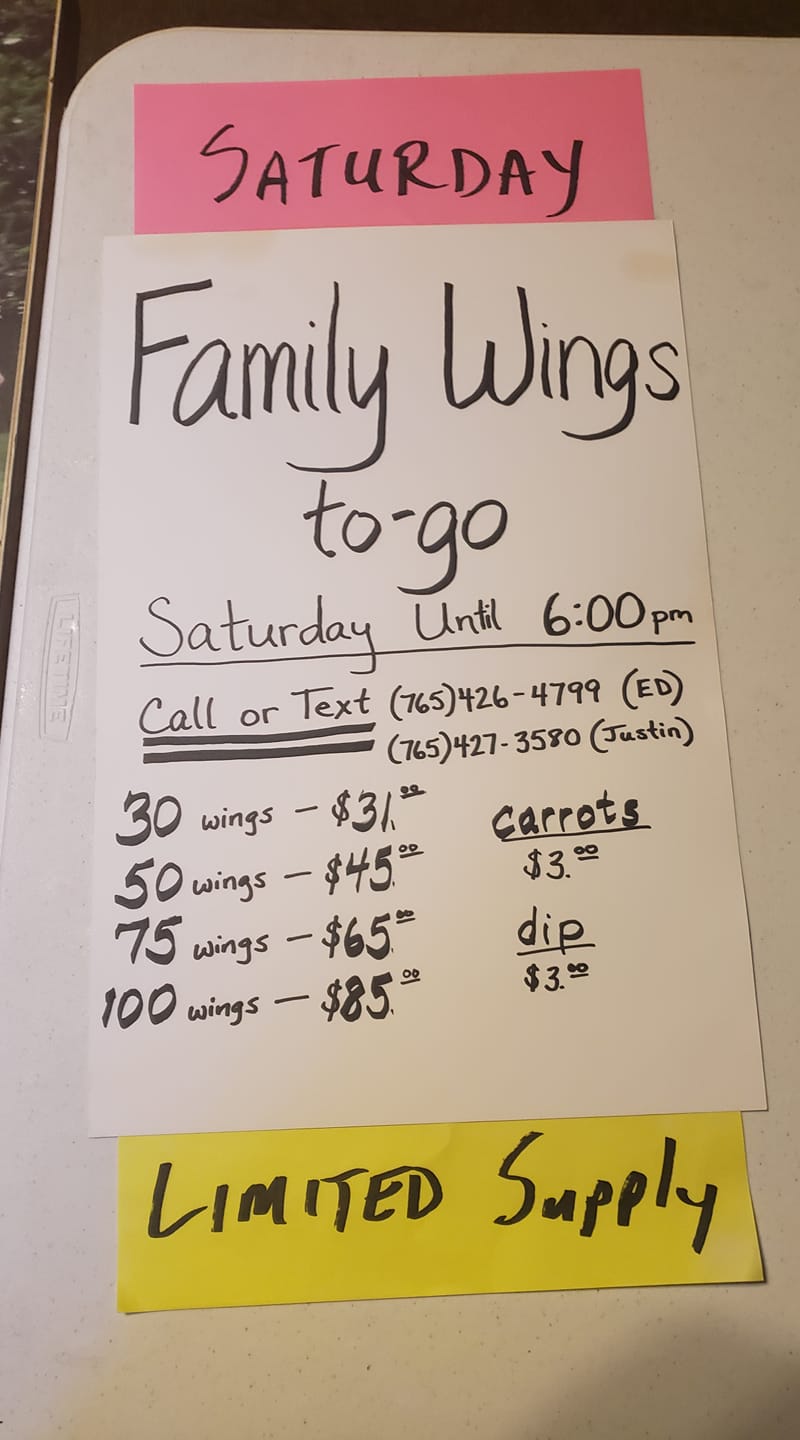 SATURDAY
Family Wings
to-go
Saturday Until 6:00pm
Call or Text (765)426-4799 (ED)
(765)427-3580 (Justin)
30 wings - $31.00
50 wings - $45.00
75 wings - $65.00
100 wings - $85.00
carrots
$3.00
dip
$3.00
LIMITED Supply
LIFETIME